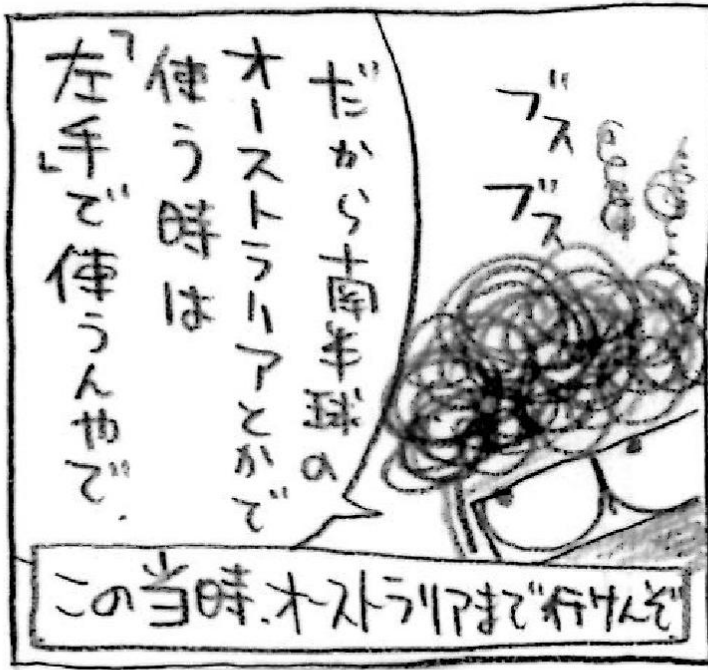 ブスブス
だから南半球の
オーストラリアとかで
使う時は
「左手」で使うんやで.
この当時、オーストラリアまで行けんぞ